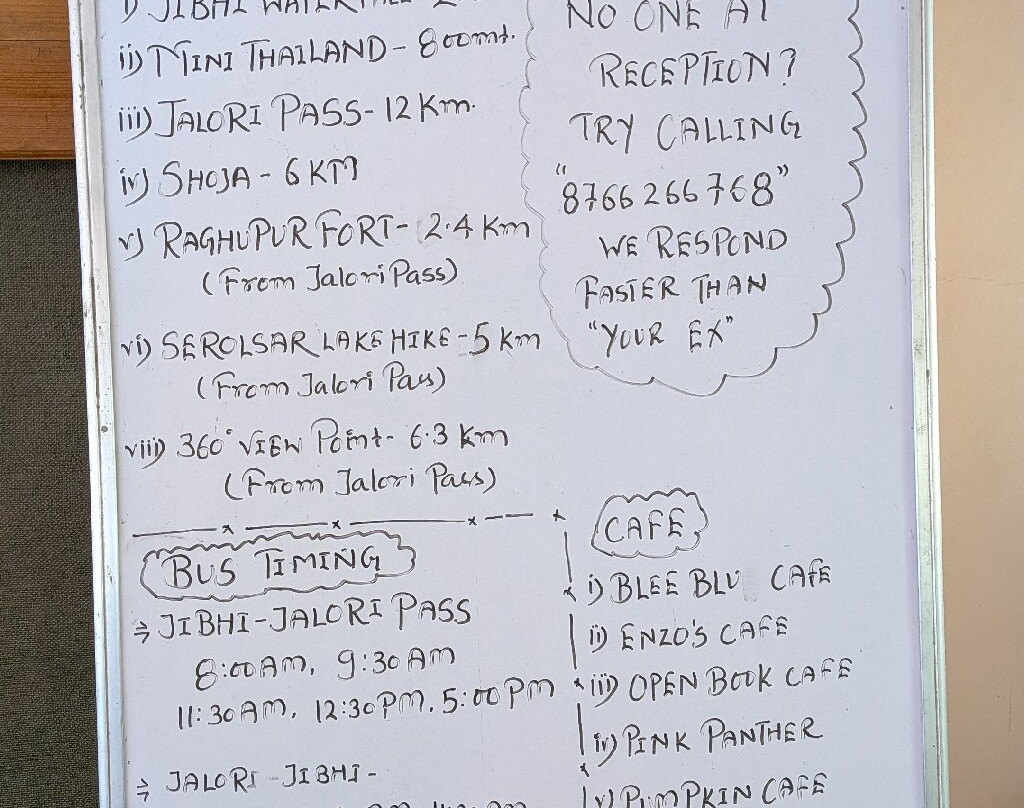 i) JIBHI WATERFALL
ii) MINI THAILAND - 800mt.
iii) JALORI PASS - 12 Km.
iv) SHOJA - 6 KM
v) RAGHUPUR FORT - 2.4 Km
(From Jalori Pass)
vi) SEROLSAR LAKE HIKE - 5 Km
(From Jalori Pass)
viii) 360° VIEW Point - 6.3 Km
(From Jalori Pass)
NO ONE AT
RECEPTION?
TRY CALLING
"8766266768"
WE RESPOND
FASTER THAN
"YOUR EX"
BUS TIMING
⇒ JIBHI-JALORI PASS
8:00 AM, 9:30 AM
11:30 AM, 12:30 PM, 5:00 PM
⇒ JALORI - JIBHI -
CAFE
i) BLEE BLU CAFE
ii) ENZO'S CAFE
iii) OPEN BOOK CAFE
iv) PINK PANTHER
v) PUMPKIN CAFE